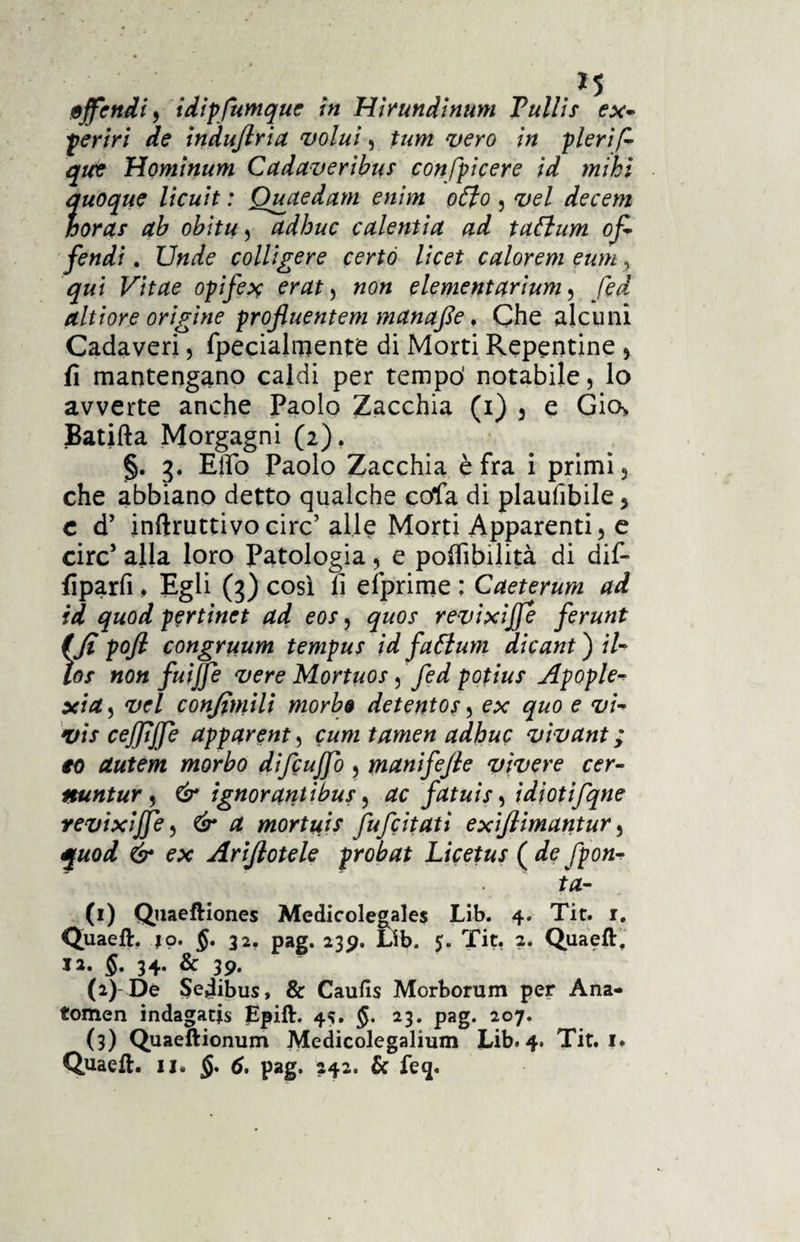 15
offendi, idipſumque in Hirundinum Pullis ex-
periri de induſtria volui, tum vero in pleriſ-
que Hominum Cadaveribus conſpicere id mihi
quoque licuit: Quaedam enim octo, vel decem
horas ab obitu, adhuc calentia ad tactum of-
fendi. Unde colligere certò licet calorem eum,
qui Vitae opifex erat, non elementarium, ſed
altiore origine profluentem manaſſe. Che alcuni
Cadaveri, ſpecialmente di Morti Repentine,
ſi mantengano caldi per tempo notabile, lo
avverte anche Paolo Zacchia (1), e Gio.
Batiſta Morgagni (2).
§. 3. Eſſo Paolo Zacchia è fra i primi,
che abbiano detto qualche coſa di plauſibile,
e d' inſtruttivo circ' alle Morti Apparenti, e
circ' alla loro Patologia, e poſſibilità di diſ-
ſiparſi. Egli (3) così ſi eſprime: Caeterum ad
id quod pertinet ad eos, quos revixiſſe ferunt
(ſi poſt congruum tempus id factum dicant) il-
los non fuiſſe vere Mortuos, ſed potius Apople-
xia, vel conſimili morbo detentos, ex quo e vi-
vis ceſſiſſe apparent, cum tamen adhuc vivant;
eo autem morbo diſcuſſo, manifeſte vivere cer-
nuntur, & ignorantibus, ac fatuis, idiotiſqne
revixiſſe, & a mortuis ſuſcitati exiſtimantur,
quod & ex Ariſtotele probat Licetus (de ſpon-
ta-
(1) Quaeſtiones Medicolegales Lib. 4. Tit. 1.
Quaeſt. 10. §. 32. pag. 239. Lib. 5. Tit. 2. Quaeſt.
12. §. 34. & 39.
(2) De Sedibus, & Cauſis Morborum per Ana-
tomen indagatis Epiſt. 45. §. 23. pag. 207.
(3) Quaeſtionum Medicolegalium Lib. 4. Tit. 1.
Quaeſt. 11. §. 6. pag. 242. & ſeq.